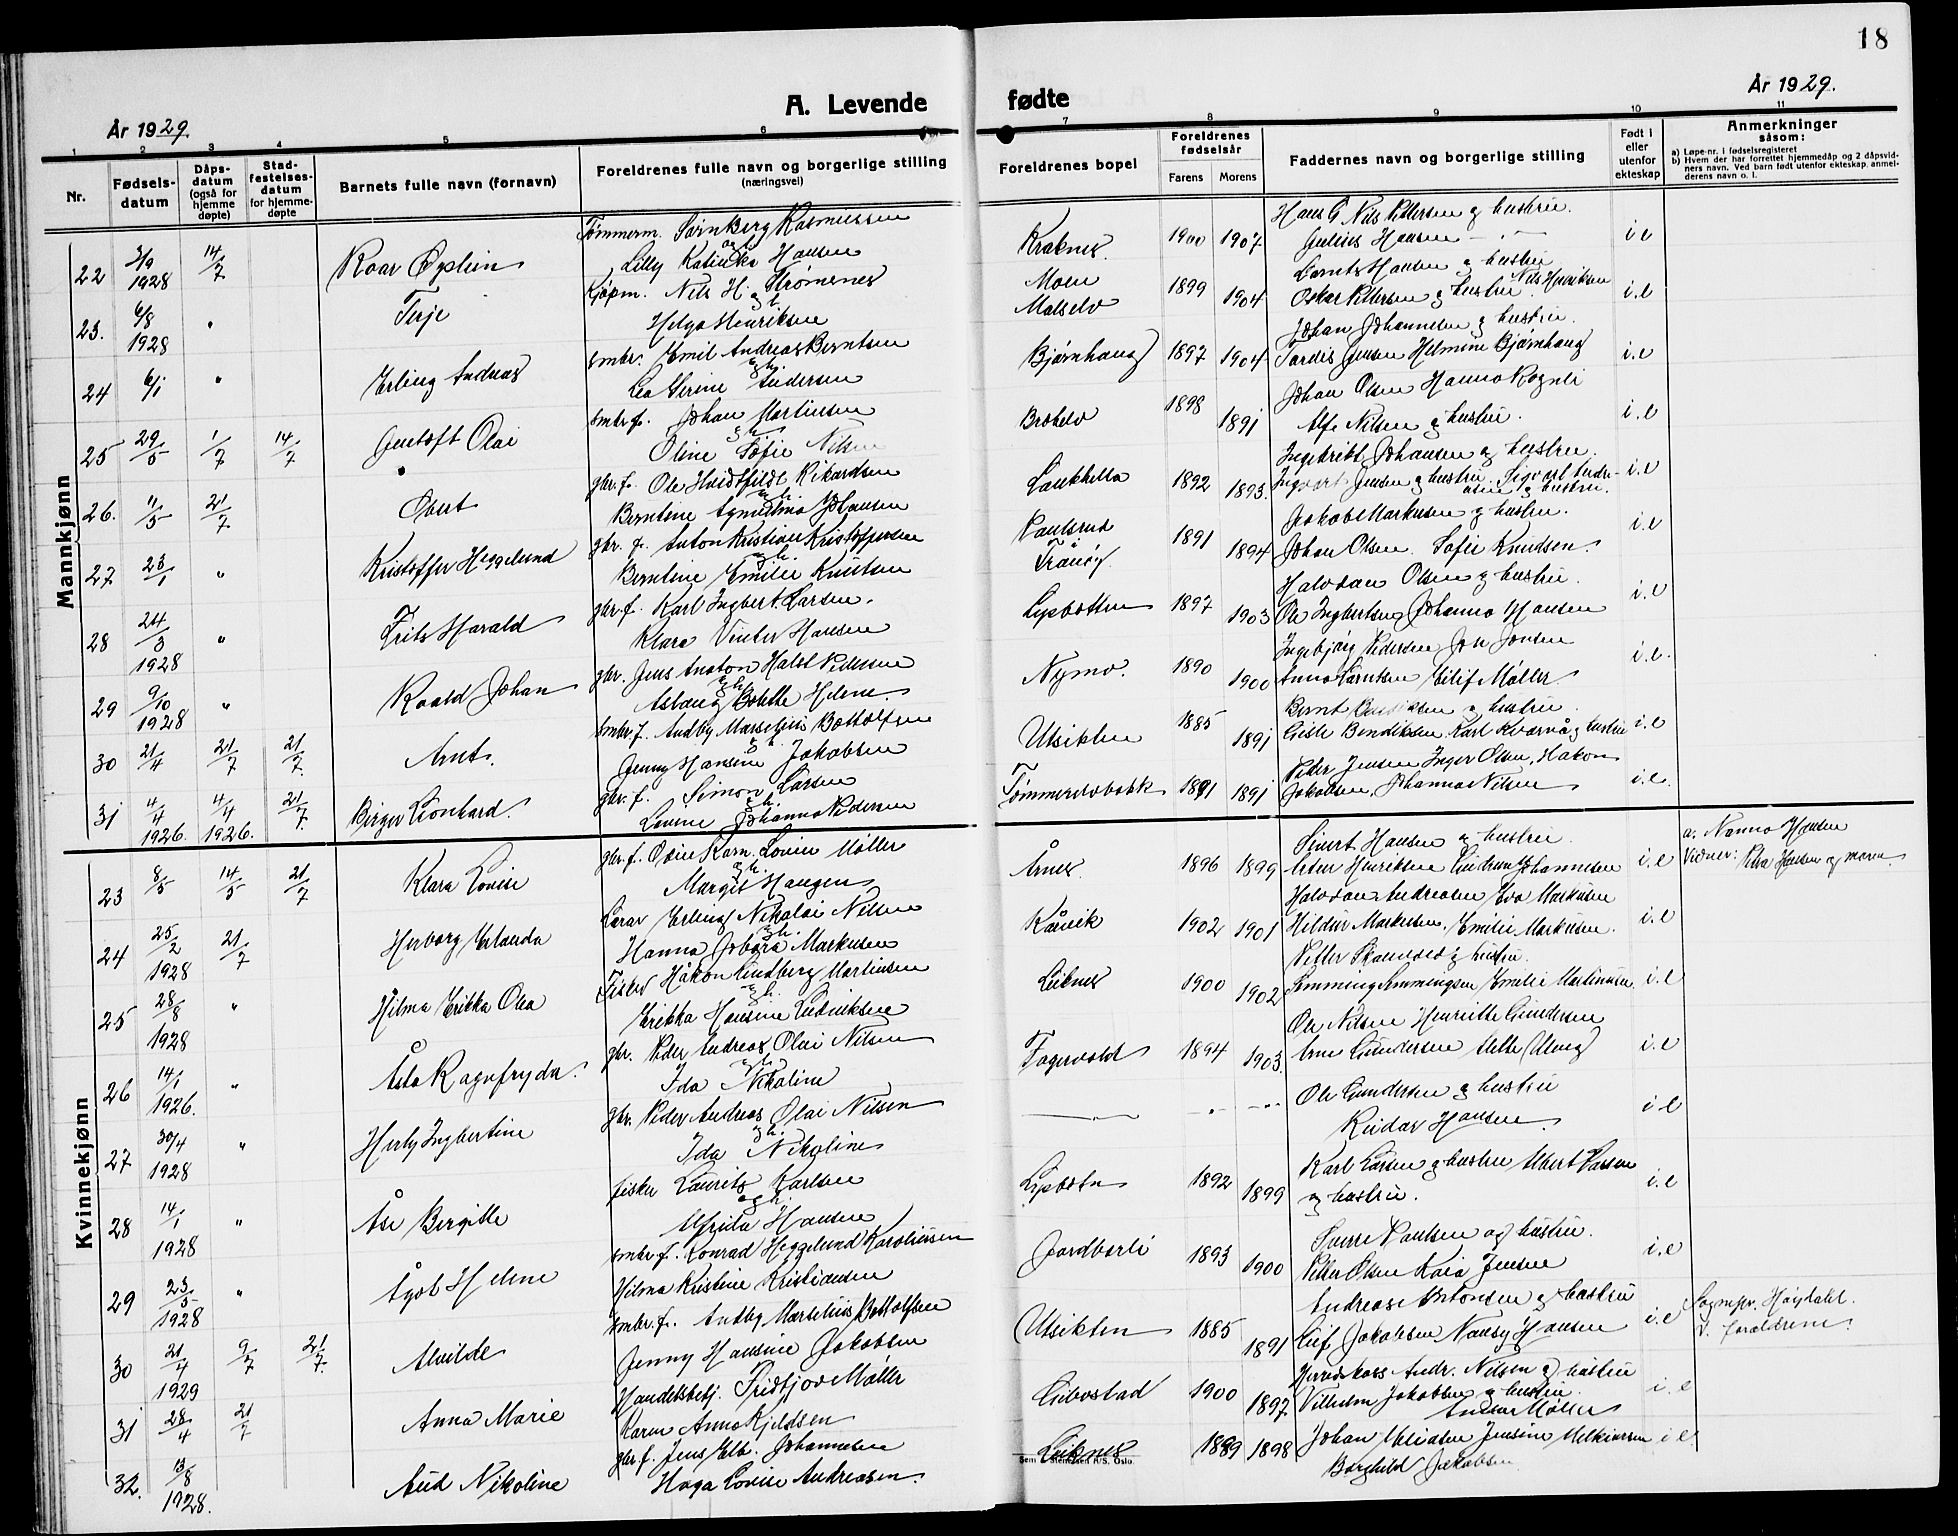 18
År 1929.
A. Levende fødte
År 1929.
1 2 3 4 5 6 7 8 9 10 11
Nr.
Fødsels-datum
Dåps-datum (også for hjemme døpte)
Stad-festelses-datum for hjemme-døpte
Barnets fulle navn (fornavn)
Foreldrenes fulle navn og borgerlige stilling
(næringsvei)
Foreldrenes bopel
Foreldrenes fødselsår
Farens Morens
Faddernes navn og borgerlige stilling
Født i eller utenfor ekteskap
Anmerkninger
såsom:
a) Løpe-nr. i fødselsregisteret
b) Hvem der har forrettet hjemmedåp og 2 dåpsvid-
ners navn. Ved barn født utenfor ekteskap. anmel-
derens navn o. l.
Mannkjønn
22 2/9 1928 14/7 Roar Øystein
Tømmerm. Sørn Berg Rasmussen
og
Lilly Katinka Hansen
Kraknes 1900 1907
Hans G. Nils Pettersen og hustru.
Julius Hansen
i e
23. 6/8 1928 " Terje
Kjøpm. Nils H. Strømsnes
og h.
Helga Henriksen
Moen Målselv 1899 1904
Oskar Pettersen og hustru. Nils Henriksen
i.e
24 6/1 " Erling Andreas
smbr. Emil Andreas Berntsen
og h.
Lea Serine Andersen
Bjørnhaug 1897 1904
Johan Johannesen og hustru.
Jensen Helmine Bjørnhaug
i.e
25 29/5 1/7 14/7 Gustaft Olai
smbr f. Johan Martinsen
og h.
Oline Sofie Nilsen
1898 1891
Johan Olsen Hanna Rognli
Alfe Nilsen og hustru.
i.e
26. 11/5 21/7 Obert
gbr. f. Ole Hvidtfildt Rikardsen
og h.
Berntine Johansen
Laukhella 1892 1893
Ingebrikt Johansen og hustru.
Jensen og hustru. Sigvart Andre-
asen og hustru.
i.e
27 23/1 " Kristoffer Heggelund
gbr. f. Anton Kristian Kristoffersen
og h.
Berntine Emilie Knutsen
Paulsrud Tranøy 1891 1894
Jakob Markusen og hustru.
Johan Olsen Sofie Knudsen.
i.e
28 24/3 1928 " Frits Harald
gbr. f. Karl Ingbert Larsen.
Klara Vinter Hansen
Lysbotten 1897 1903
Halvdan Olsen og hustru.
Ole Ingbertsen Johanna Hansen
i.e
29 9/10 1928 " Roald Johan
gbr. Jens Anton Halst Pedersen
og h.
Aslaug Bolette Helene.
Nymo 1890 1900
Ingebjørg Pedersen Jon Jonsen
Anna Berntsen Eilif Møller
i.e.
30 21/4 21/7 21/7 Arnt.
smbr f. Andby Marselius Bottolfsen
og h.
Jenny Hansine Jakobsen
Utsikten 1885 1891
Bernt Bendiksen og hustru.
Gisle Bendiksen Karl Kværnå og hustru
i.e
31 4/4 1926 4/4 1926. 21/7 Birger Leonhard.
gbr. f. Simon Larsen
og h.
Lovine Johanna Pedersen
Tømmerelvbakk 1891 1891
Peder Jensen Inger Olsen, Hakon
Jakobsen, Johanna Nilsen
i.e.
Kvinnekjønn
23 8/5 14/5 21/7 Klara Lovise
gbr. f. Odin Karn. Lovin Møller
og h.
Margit Haugen
Årnes 1896 1899
Sivert Hansen og hustru.
Peter Henriksen Gudrun Johannesen
i.e
a. Nanna Hansen
Vidner: Petra Hansen og moren
24 25/2 1928 21/7 Herborg Erlanda
Lærer Erling Nikolai Nilsen
og h.
Hanna Jobgra Markusen
Kårvik 1902 1901
Halvdan Andreasen Eva Markusen
Hildur Markusen. Emilie Markusen.
i.e
25 28/8 1928 " Hilma Erikka Olea
Fisker Håkon Lindberg Martinsen
og h.
Erikka Hansine Ludviksen
Leiknes 1900 1902
Petter Skanseed og hustru.
Hemming Hemmingsen Emilie Martinusen
i.e
26 14/1 1926. " Åsta Ragnfryda.
gbr. Peder Andreas Olai Nilsen
og h.
Ida Nikoline
Fagervold 1894 1903
Ole Nilsen Henritte Gundersen
Arne Gundersen Mette Ulvang
i.e
27 30/4 1928 " Herly Ingbertine
gbr. Peder Andreas Olai Nilsen
og h.
Ida Nikoline
Ole Gundersen og hustru
Reidar Hansen.
i e
28 14/1 1928 " Åse Bergitte
fisker Laurits Karlsen
og h.
Alfrida Hansen
Lysbotn 1892 1899
Karl Larsen og hustru Albert Larsen
og hustru.
i.e
29 23/5 1928 " Ågot Helene
smbr. f. Konrad Heggelund Karoliussen
Hilma Kristine Kristiansen
Jordbærli 1893 1900
Sverre Paulsen og hustru.
Peter Olsen Kaia Jensen
i.e
30 21/4 1929 9/7 21/7. Alvilde
smbr. f. Andby Marselius Bottolfsen
Jenny Hansine Jakobsen
Utsikten 1885 1891
Andreas Antonsen og hustru
Leif Jakobsen Nansy Hansen
i.e
Sognepr. Høydahl.
V. foreldrene.
31 28/4 21/7 Anna Marie
Handelsbetj. Fridtjov Møller
Karen Anna Kjeldsen
Gibostad 1900 1897
Herredskass. Andr. Nilsen og hustru
Vilhelm Jakobsen og hustru.
Møller
i.e
32. 13/8 1928. Aud Nikoline
gbr f. Jens Elb. Johannesen
Haga Lovise Andreasen.
Leiknes 1889 1898
Johan Eliasen Jensine Melkiorsen
Borghild Jakobsen
i e.
Sem & Stenersen A/S. Oslo.